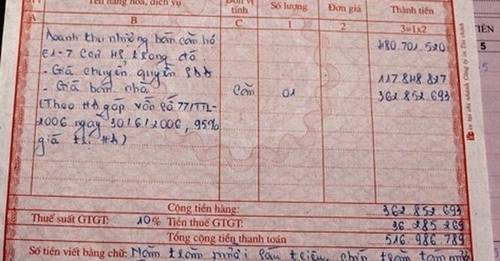 Tên hàng hóa, dịch vụ Đơn vị tính Số lượng Đơn giá Thành tiền
A B C 1 2 3=1x2
Doanh thu nhượng bán căn hộ 480.701.520
E1-7 của HĐ, trong đó:
- Giá chuyển quyền SDĐ 117.848.827
- Giá bán nhà Căn 01 362.852.693
(Theo HĐ góp vốn số 77/TTL-
2006 ngày 30/6/2006, 95%
giá trị HĐ)
Cộng tiền hàng: 362 852 693
Thuế suất GTGT: 10% Tiền thuế GTGT: 36 285 269
Tổng cộng tiền thanh toán 516 986 789
Số tiền viết bằng chữ: Năm trăm mười sáu triệu, chín trăm tám mươi
TIỀN
5